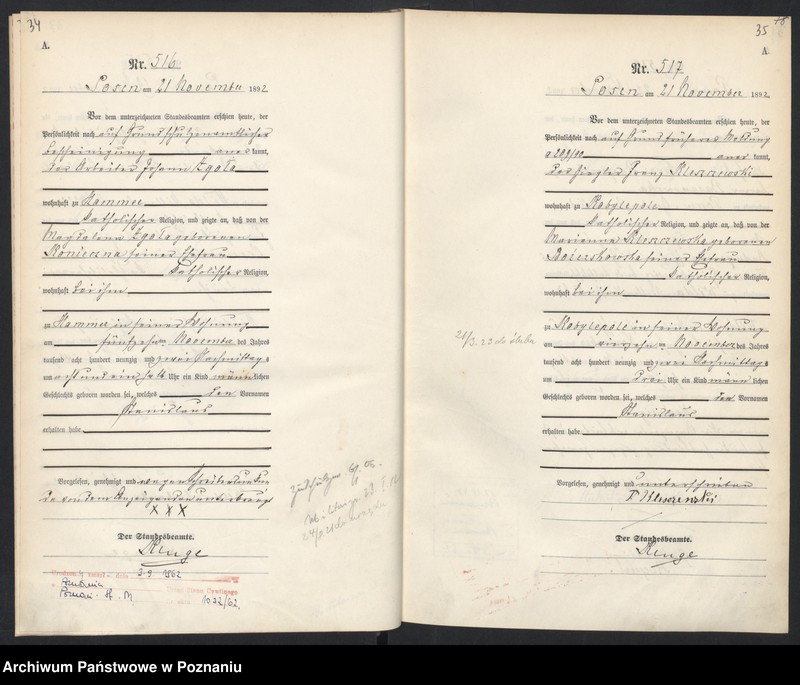 34
A.
Nr. 516
Posen am 21 November 1892
Vor dem unterzeichneten Standesbeamten erschien heute, der
Persönlichkeit nach auf Grund
bescheinigung anerkannt,
der Arbeiter Johann Zgoła
wohnhaft zu Hammer
katholischer Religion, und zeigte an, daß von der
Magdalena Zgoła geborenen
Konieczna seiner Ehefrau
katholischer Religion,
wohnhaft bei ihm
zu Hammer in seiner Wohnung
am fünfzehnten November des Jahres
tausend acht hundert neunzig und zwei Nachmittags
um acht und ein halb Uhr ein Kind männlichen
Geschlechts geboren worden sei, welches den Vornamen
Stanislaus
erhalten habe
Vorgelesen, genehmigt und wegen Schreibensunkun
de von dem Anzeigenden unterkreuzt
XXX
Der Standesbeamte.
3.9 1962
1032/62.
35
A
Nr. 517
Posen am 21 November 1892
Vor dem unterzeichneten Standesbeamten erschien heute, der
Persönlichkeit nach auf Grund früherer Meldung
anerkannt,
der Ziegler Franz Kleszewski
wohnhaft zu Kobylepole
katholischer Religion, und zeigte an, daß von der
Marianna geborenen
seiner Ehefrau
katholischer Religion,
wohnhaft bei ihm
zu Kobylepole in seiner Wohnung
am vierzehnten November des Jahres
tausend acht hundert neunzig und zwei Nachmittags
um drei Uhr ein Kind männlichen
Geschlechts geboren worden sei, welches den Vornamen
Stanislaus
erhalten habe
Vorgelesen, genehmigt und unterschrieben
Der Standesbeamte.
Archiwum Państwowe w Poznaniu